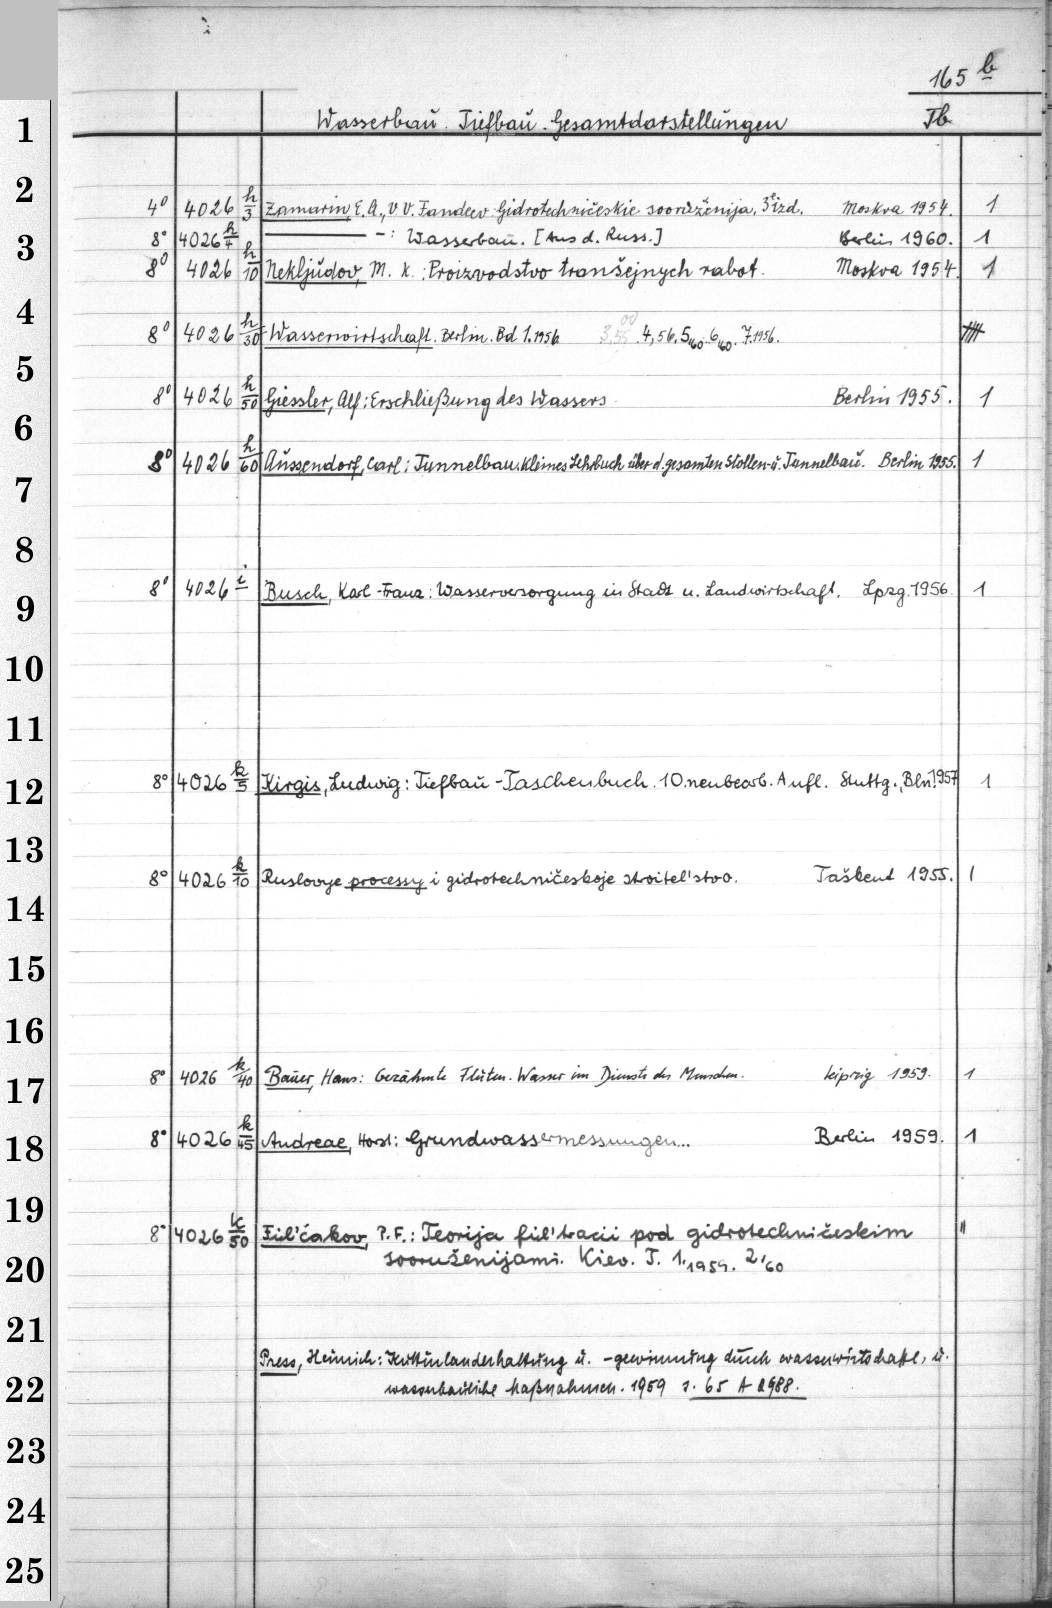 165 b
1 Wasserbau. Tiefbau. Gesamtdarstellungen Tb
2
4° 4026 h/3 Zamarin, E. A., V. V. Fandeev Gidrotechničeskie sooruženija. 3e izd. Moskva 1954. 1
3 8° 4026 h/4 — -: Wasserbau. [Aus d. Russ.] Berlin 1960. 1
8° 4026 h/10 Nekljudov, M. K.: Proizvodstvo tranšejnych rabot. Moskva 1954. 1
4 8° 4026 h/30 Wasserwirtschaft. Berlin. Bd 1.1956 3,55 4,56. 5,60. 6,60. 7.1956.
5
8° 4026 h/50 Giessler, Alf: Erschließung des Wassers. Berlin 1955. 1
6
8° 4026 h/60 Aussendorf, Carl: Tunnelbau: Kleines Lehrbuch über d. gesamten Stollen- u. Tunnelbau. Berlin 1955. 1
7
8
8° 4026 i Busch, Karl-Franz: Wasserversorgung in Stadt u. Landwirtschaft. Lpzg. 1956. 1
9
10
11
12 8° 4026 k/5 Kirgis, Ludwig: Tiefbau-Taschenbuch. 10. neubearb. Aufl. Stuttg., Bln. 1957 1
13
8° 4026 k/10 Ruslovye processy i gidrotechničeskoje stroitel'stvo. Taškent 1955. 1
14
15
16
17 8° 4026 k/40 Bauer, Hans: Gezähmte Fluten. Wasser im Dienste des Menschen. Leipzig 1959. 1
18 8° 4026 k/45 Andreae, Horst: Grundwassermessungen... Berlin 1959. 1
19
8° 4026 k/50 Fil'čakov, P. F.: Teorija fil'tracii pod gidrotechničeskim "
20 sooruženijami. Kiev. T. 1,1959. 2,60
21
Press, Heinrich: Kulturlanderhaltung u. -gewinnung durch wasserwirtschaftl. u.
22 wasserbauliche Maßnahmen. 1959 s. 65 A 2988.
23
24
25